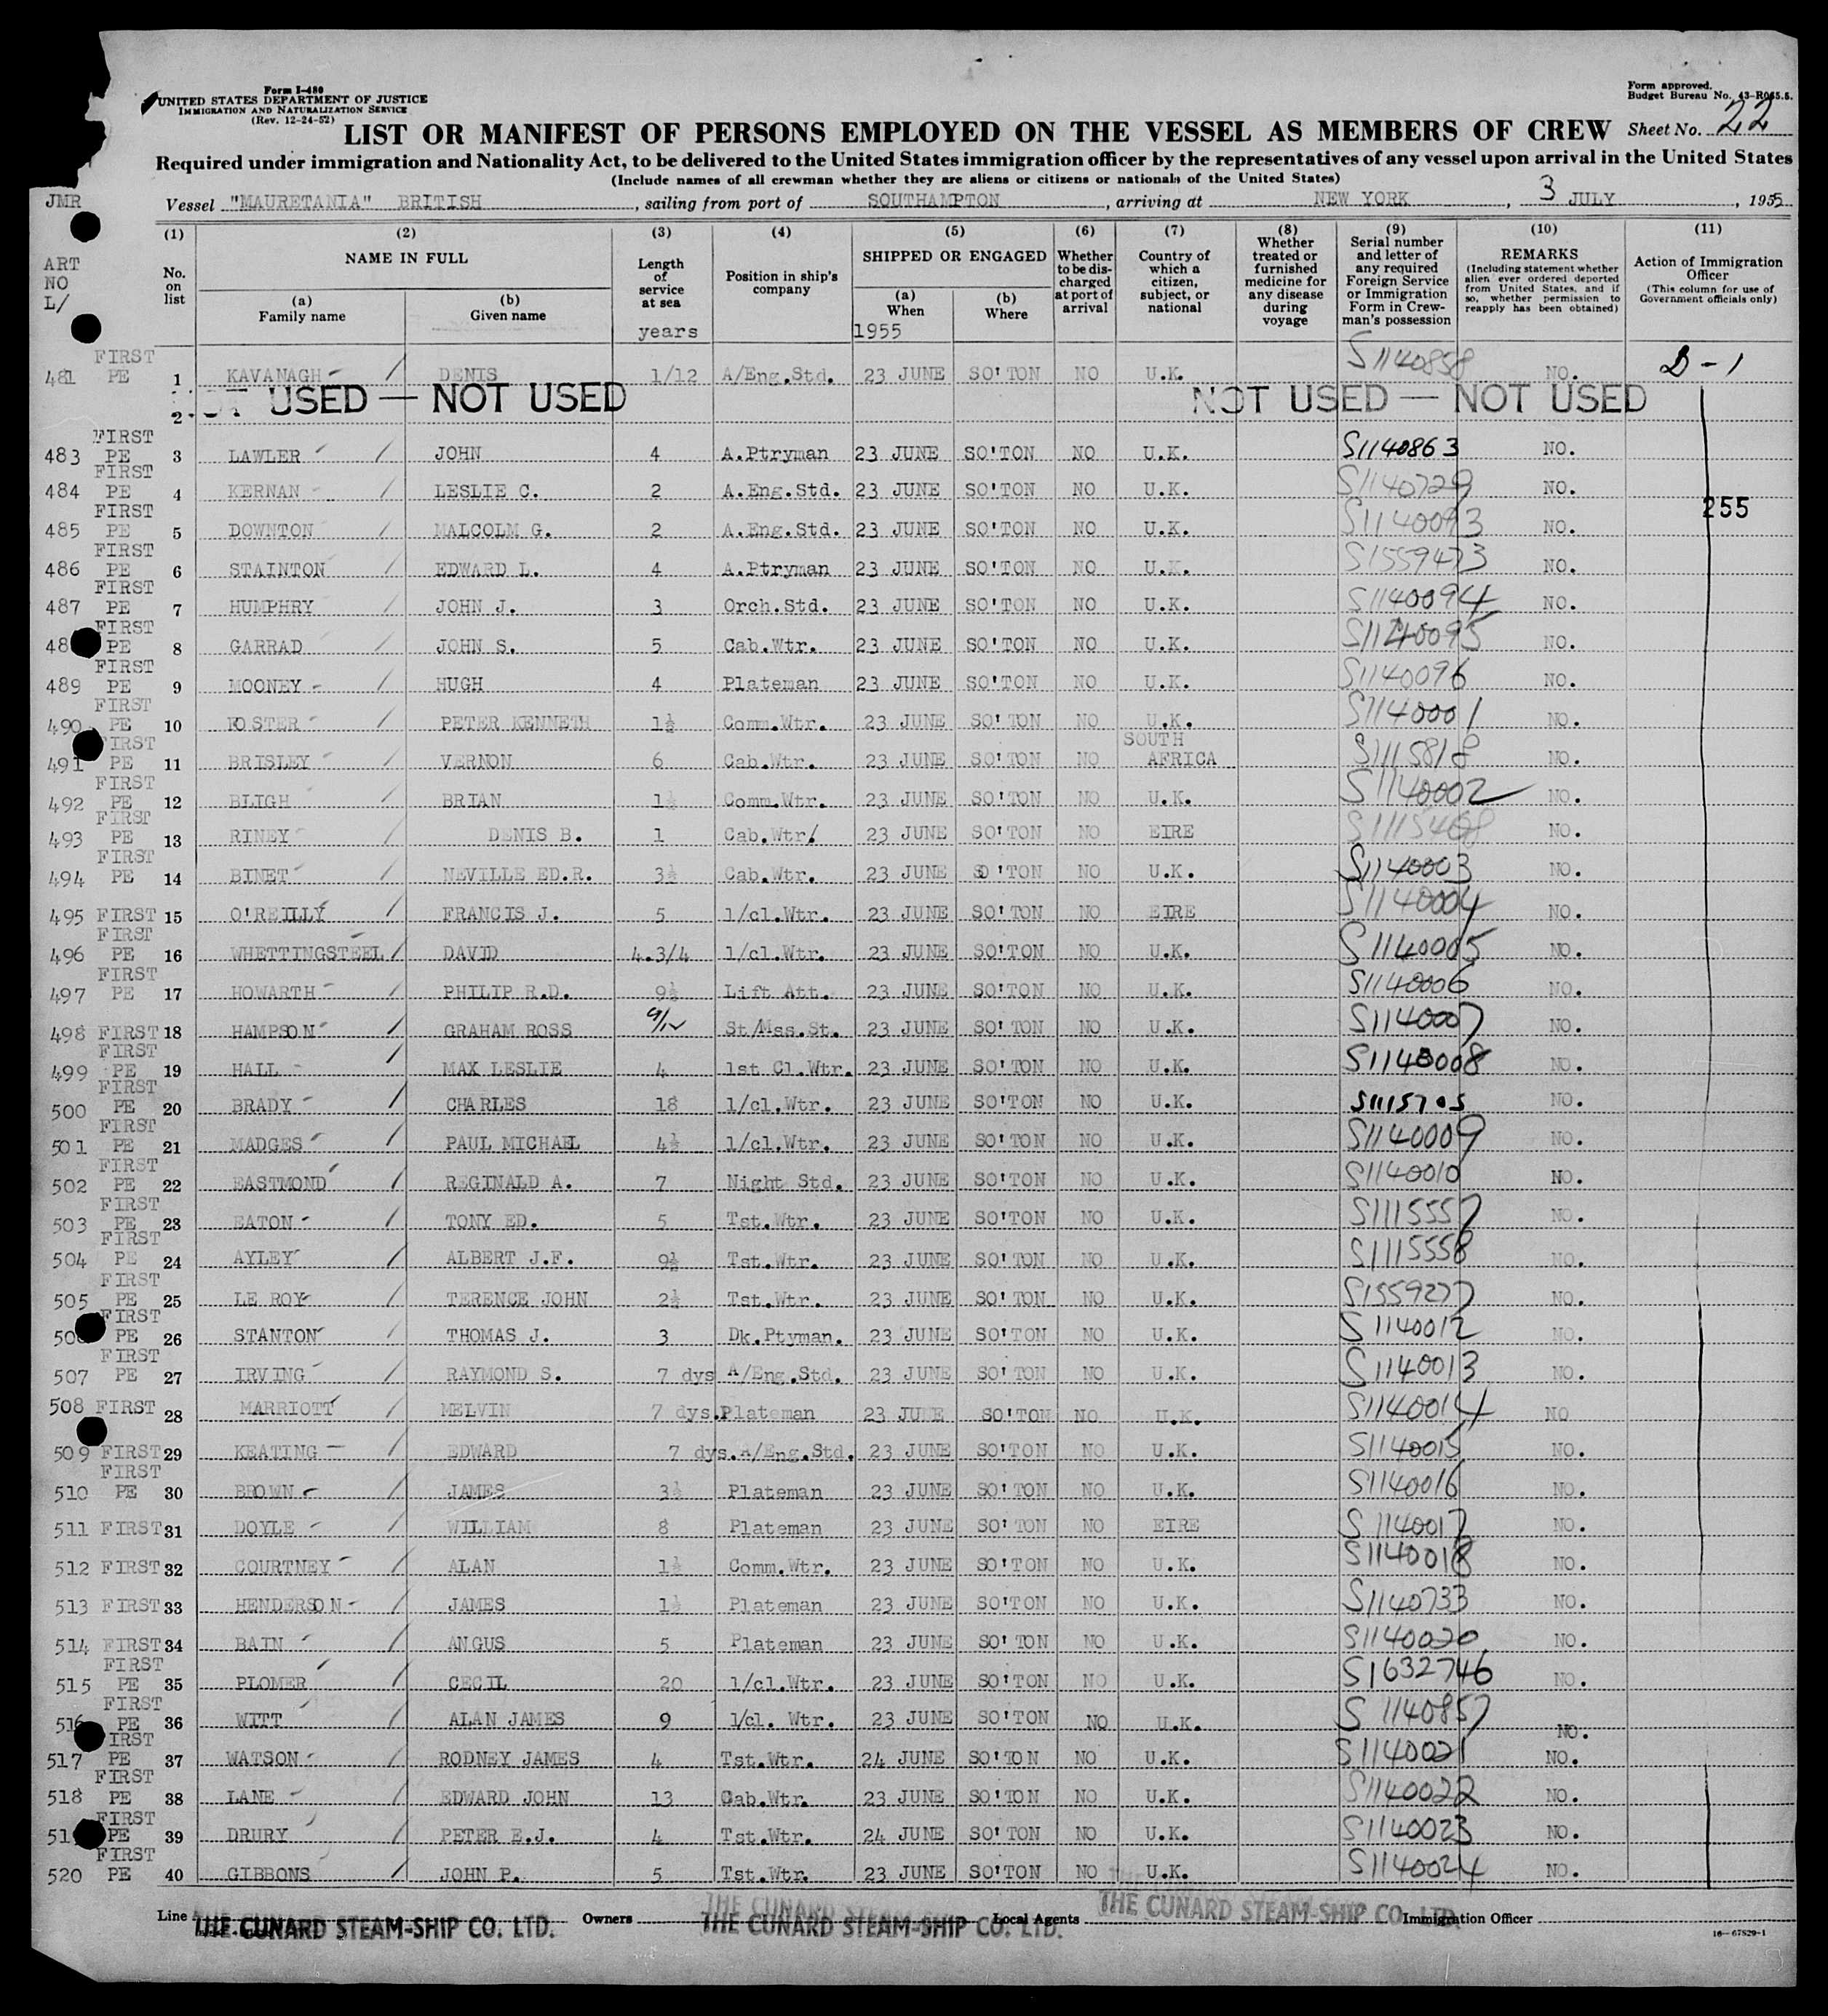 Form I-480
UNITED STATES DEPARTMENT OF JUSTICE
IMMIGRATION AND NATURALIZATION SERVICE
(Rev. 12-24-52)
Form approved.
Budget Bureau No. 43-R065.5.
LIST OR MANIFEST OF PERSONS EMPLOYED ON THE VESSEL AS MEMBERS OF CREW Sheet No. 22
Required under immigration and Nationality Act, to be delivered to the United States immigration officer by the representatives of any vessel upon arrival in the United States
(Include names of all crewman whether they are aliens or citizens or nationals of the United States)
JMR
Vessel "MAURETANIA" BRITISH, sailing from port of SOUTHAMPTON, arriving at NEW YORK, 3 JULY, 1955
ART
NO
L/
(1) No. on list
(2) NAME IN FULL (a) Family name (b) Given name
(3) Length of service at sea years
(4) Position in ship's company
(5) SHIPPED OR ENGAGED (a) When 1955 (b) Where
(6) Whether to be discharged at port of arrival
(7) Country of which a citizen, subject, or national
(8) Whether treated or furnished medicine for any disease during voyage
(9) Serial number and letter of any required Foreign Service or Immigration Form in Crewman's possession
(10) REMARKS (Including statement whether alien ever ordered deported from United States, and if so, whether permission to reapply has been obtained)
(11) Action of Immigration Officer (This column for use of Government officials only)
481 FIRST PE 1 KAVANAGH DENIS 1/12 A/Eng.Std. 23 JUNE SO'TON NO U.K. S1140858 NO. D-1
2 USED — NOT USED NOT USED — NOT USED
483 FIRST PE 3 LAWLER JOHN 4 A.Ptryman 23 JUNE SO'TON NO U.K. S1140863 NO.
484 FIRST PE 4 KERNAN LESLIE C. 2 A.Eng.Std. 23 JUNE SO'TON NO U.K. S1140729 NO.
255
485 FIRST PE 5 DOWNTON MALCOLM G. 2 A.Eng.Std. 23 JUNE SO'TON NO U.K. S1140093 NO.
486 FIRST PE 6 STAINTON EDWARD L. 4 A.Ptryman 23 JUNE SO'TON NO U.K. S1559473 NO.
487 FIRST PE 7 HUMPHRY JOHN J. 3 Orch.Std. 23 JUNE SO'TON NO U.K. S1140094 NO.
48 FIRST PE 8 GARRAD JOHN S. 5 Cab.Wtr. 23 JUNE SO'TON NO U.K. S1140095 NO.
489 FIRST PE 9 MOONEY HUGH 4 Plateman 23 JUNE SO'TON NO U.K. S1140096 NO.
490 FIRST PE 10 KOSTER PETER KENNETH 1½ Comm.Wtr. 23 JUNE SO'TON NO U.K. S1140001 NO.
491 FIRST PE 11 BRISLEY VERNON 6 Cab.Wtr. 23 JUNE SO'TON NO SOUTH AFRICA S1115818 NO.
492 FIRST PE 12 BLIGH BRIAN 1½ Comm.Wtr. 23 JUNE SO'TON NO U.K. S1140002 NO.
493 FIRST PE 13 RINEY DENIS B. 1 Cab.Wtr. 23 JUNE SO'TON NO EIRE NO.
494 FIRST PE 14 BINET NEVILLE ED.R. 3½ Cab.Wtr. 23 JUNE SO'TON NO U.K. S1140003 NO.
495 FIRST 15 O'REILLY FRANCIS J. 5 1/cl.Wtr. 23 JUNE SO'TON NO EIRE S1140004 NO.
496 FIRST PE 16 WHETTINGSTEEL DAVID 4.3/4 1/cl.Wtr. 23 JUNE SO'TON NO U.K. S1140005 NO.
497 FIRST PE 17 HOWARTH PHILIP R.D. 9½ Lift Att. 23 JUNE SO'TON NO U.K. S1140006 NO.
498 FIRST 18 HAMPSON GRAHAM ROSS 9/12 St/Mss.St. 23 JUNE SO'TON NO U.K. S1140007 NO.
499 FIRST PE 19 HALL MAX LESLIE 4 1st Cl.Wtr. 23 JUNE SO'TON NO U.K. S1140008 NO.
500 FIRST PE 20 BRADY CHARLES 18 1/cl.Wtr. 23 JUNE SO'TON NO U.K. S1115705 NO.
501 FIRST PE 21 MADGES PAUL MICHAEL 4½ 1/cl.Wtr. 23 JUNE SO'TON NO U.K. S1140009 NO.
502 FIRST PE 22 EASTMOND REGINALD A. 7 Night Std. 23 JUNE SO'TON NO U.K. S1140010 NO.
503 FIRST PE 23 EATON TONY ED. 5 Tst.Wtr. 23 JUNE SO'TON NO U.K. S1115557 NO.
504 FIRST PE 24 AYLEY ALBERT J.F. 9½ Tst.Wtr. 23 JUNE SO'TON NO U.K. S1115558 NO.
505 FIRST PE 25 LE ROY TERENCE JOHN 2½ Tst.Wtr. 23 JUNE SO'TON NO U.K. S1559277 NO.
50 FIRST PE 26 STANTON THOMAS J. 3 Dk.Ptyman. 23 JUNE SO'TON NO U.K. S1140012 NO.
507 FIRST PE 27 IRVING RAYMOND S. 7 dys A/Eng.Std. 23 JUNE SO'TON NO U.K. S1140013 NO.
508 FIRST 28 MARRIOTT MELVIN 7 dys. Plateman 23 JUNE SO'TON NO U.K. S1140014 NO
509 FIRST 29 KEATING EDWARD 7 dys. A/Eng.Std. 23 JUNE SO'TON NO U.K. S1140015 NO.
510 FIRST PE 30 BROWN JAMES 3½ Plateman 23 JUNE SO'TON NO U.K. S1140016 NO.
511 FIRST 31 DOYLE WILLIAM 8 Plateman 23 JUNE SO'TON NO EIRE S1140017 NO.
512 FIRST 32 COURTNEY ALAN 1½ Comm.Wtr. 23 JUNE SO'TON NO U.K. S1140018 NO.
513 FIRST 33 HENDERSON JAMES 1½ Plateman 23 JUNE SO'TON NO U.K. S1140733 NO.
514 FIRST 34 BAIN ANGUS 5 Plateman 23 JUNE SO'TON NO U.K. S1140020 NO.
515 FIRST PE 35 PLOMER CECIL 20 1/cl.Wtr. 23 JUNE SO'TON NO U.K. S1632746 NO.
516 FIRST PE 36 WITT ALAN JAMES 9 1/cl. Wtr. 23 JUNE SO'TON NO U.K. S1140857 NO.
517 FIRST PE 37 WATSON RODNEY JAMES 4 Tst.Wtr. 24 JUNE SO'TON NO U.K. S1140021 NO.
518 FIRST PE 38 LANE EDWARD JOHN 13 Cab.Wtr. 23 JUNE SO'TON NO U.K. S1140022 NO.
51 FIRST PE 39 DRURY PETER E.J. 4 Tst.Wtr. 24 JUNE SO'TON NO U.K. S1140023 NO.
520 FIRST PE 40 GIBBONS JOHN P. 5 Tst.Wtr. 23 JUNE SO'TON NO U.K. S1140024 NO.
Line THE CUNARD STEAM-SHIP CO. LTD. Owners THE CUNARD STEAM-SHIP CO. LTD. Local Agents THE CUNARD STEAM-SHIP CO. LTD. Immigration Officer
16-67829-1